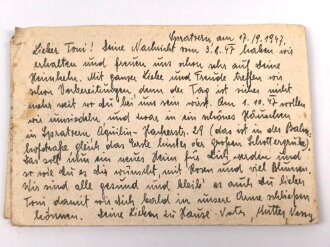 Spratzern am 17.19.1947.
Lieber Toni! Deine Nachricht vom 3.8.47 haben wir
erhalten und freuen uns schon sehr auf deine
Heimkehr. Mit ganzer Liebe und Freude treffen wir
schon Vorbereitungen, denn der Tag ist nicht
mehr weit wo du bei uns sein wirst. Am 1.10.47 wollen
wir umsiedeln und zwar in ein schönes Häuschen
in Spratzern 29 (das ist in der Bahn-
hofstraße gleich das Erste hinter der großen Schottergrube).
Das soll nun ein neues Heim für dich werden und
so wie du es dir wünscht, mit Rosen und viel Blumen.
Wir sind alle gesund und bleib es auch du lieber
Toni damit wir dich bald in unsere Arme schließen
können. Deine Lieben zu Hause. Vater, Mutter